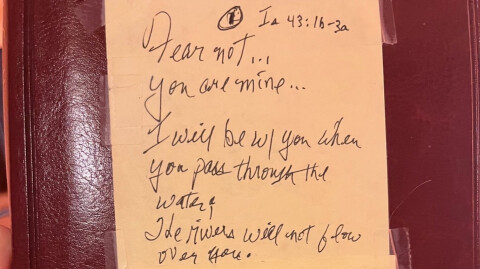 ① Is 43:1b-3a
Fear not...
you are mine...
I will be w/ you when
you pass through the
water;
The rivers will not flow
over you.